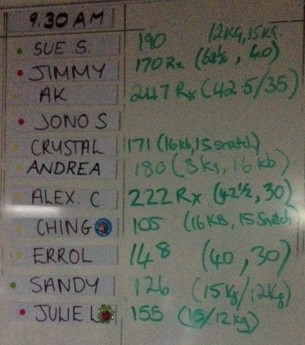 9.30 AM
SUE S. 190 12kg, 15kg.
JIMMY 170 Rx (62½, 40)
AK 247 Rx (42.5/35)
JONO S
CRYSTAL 171 (16kb, 15 snatch)
ANDREA 180 (8kg, 16kb)
ALEX. C 222 Rx (42½, 30)
CHING 105 (16KB, 15 Snatch
ERROL 148 (40, 30)
SANDY 126 (15kg/12kg)
JULIE L 155 (15/12kg)